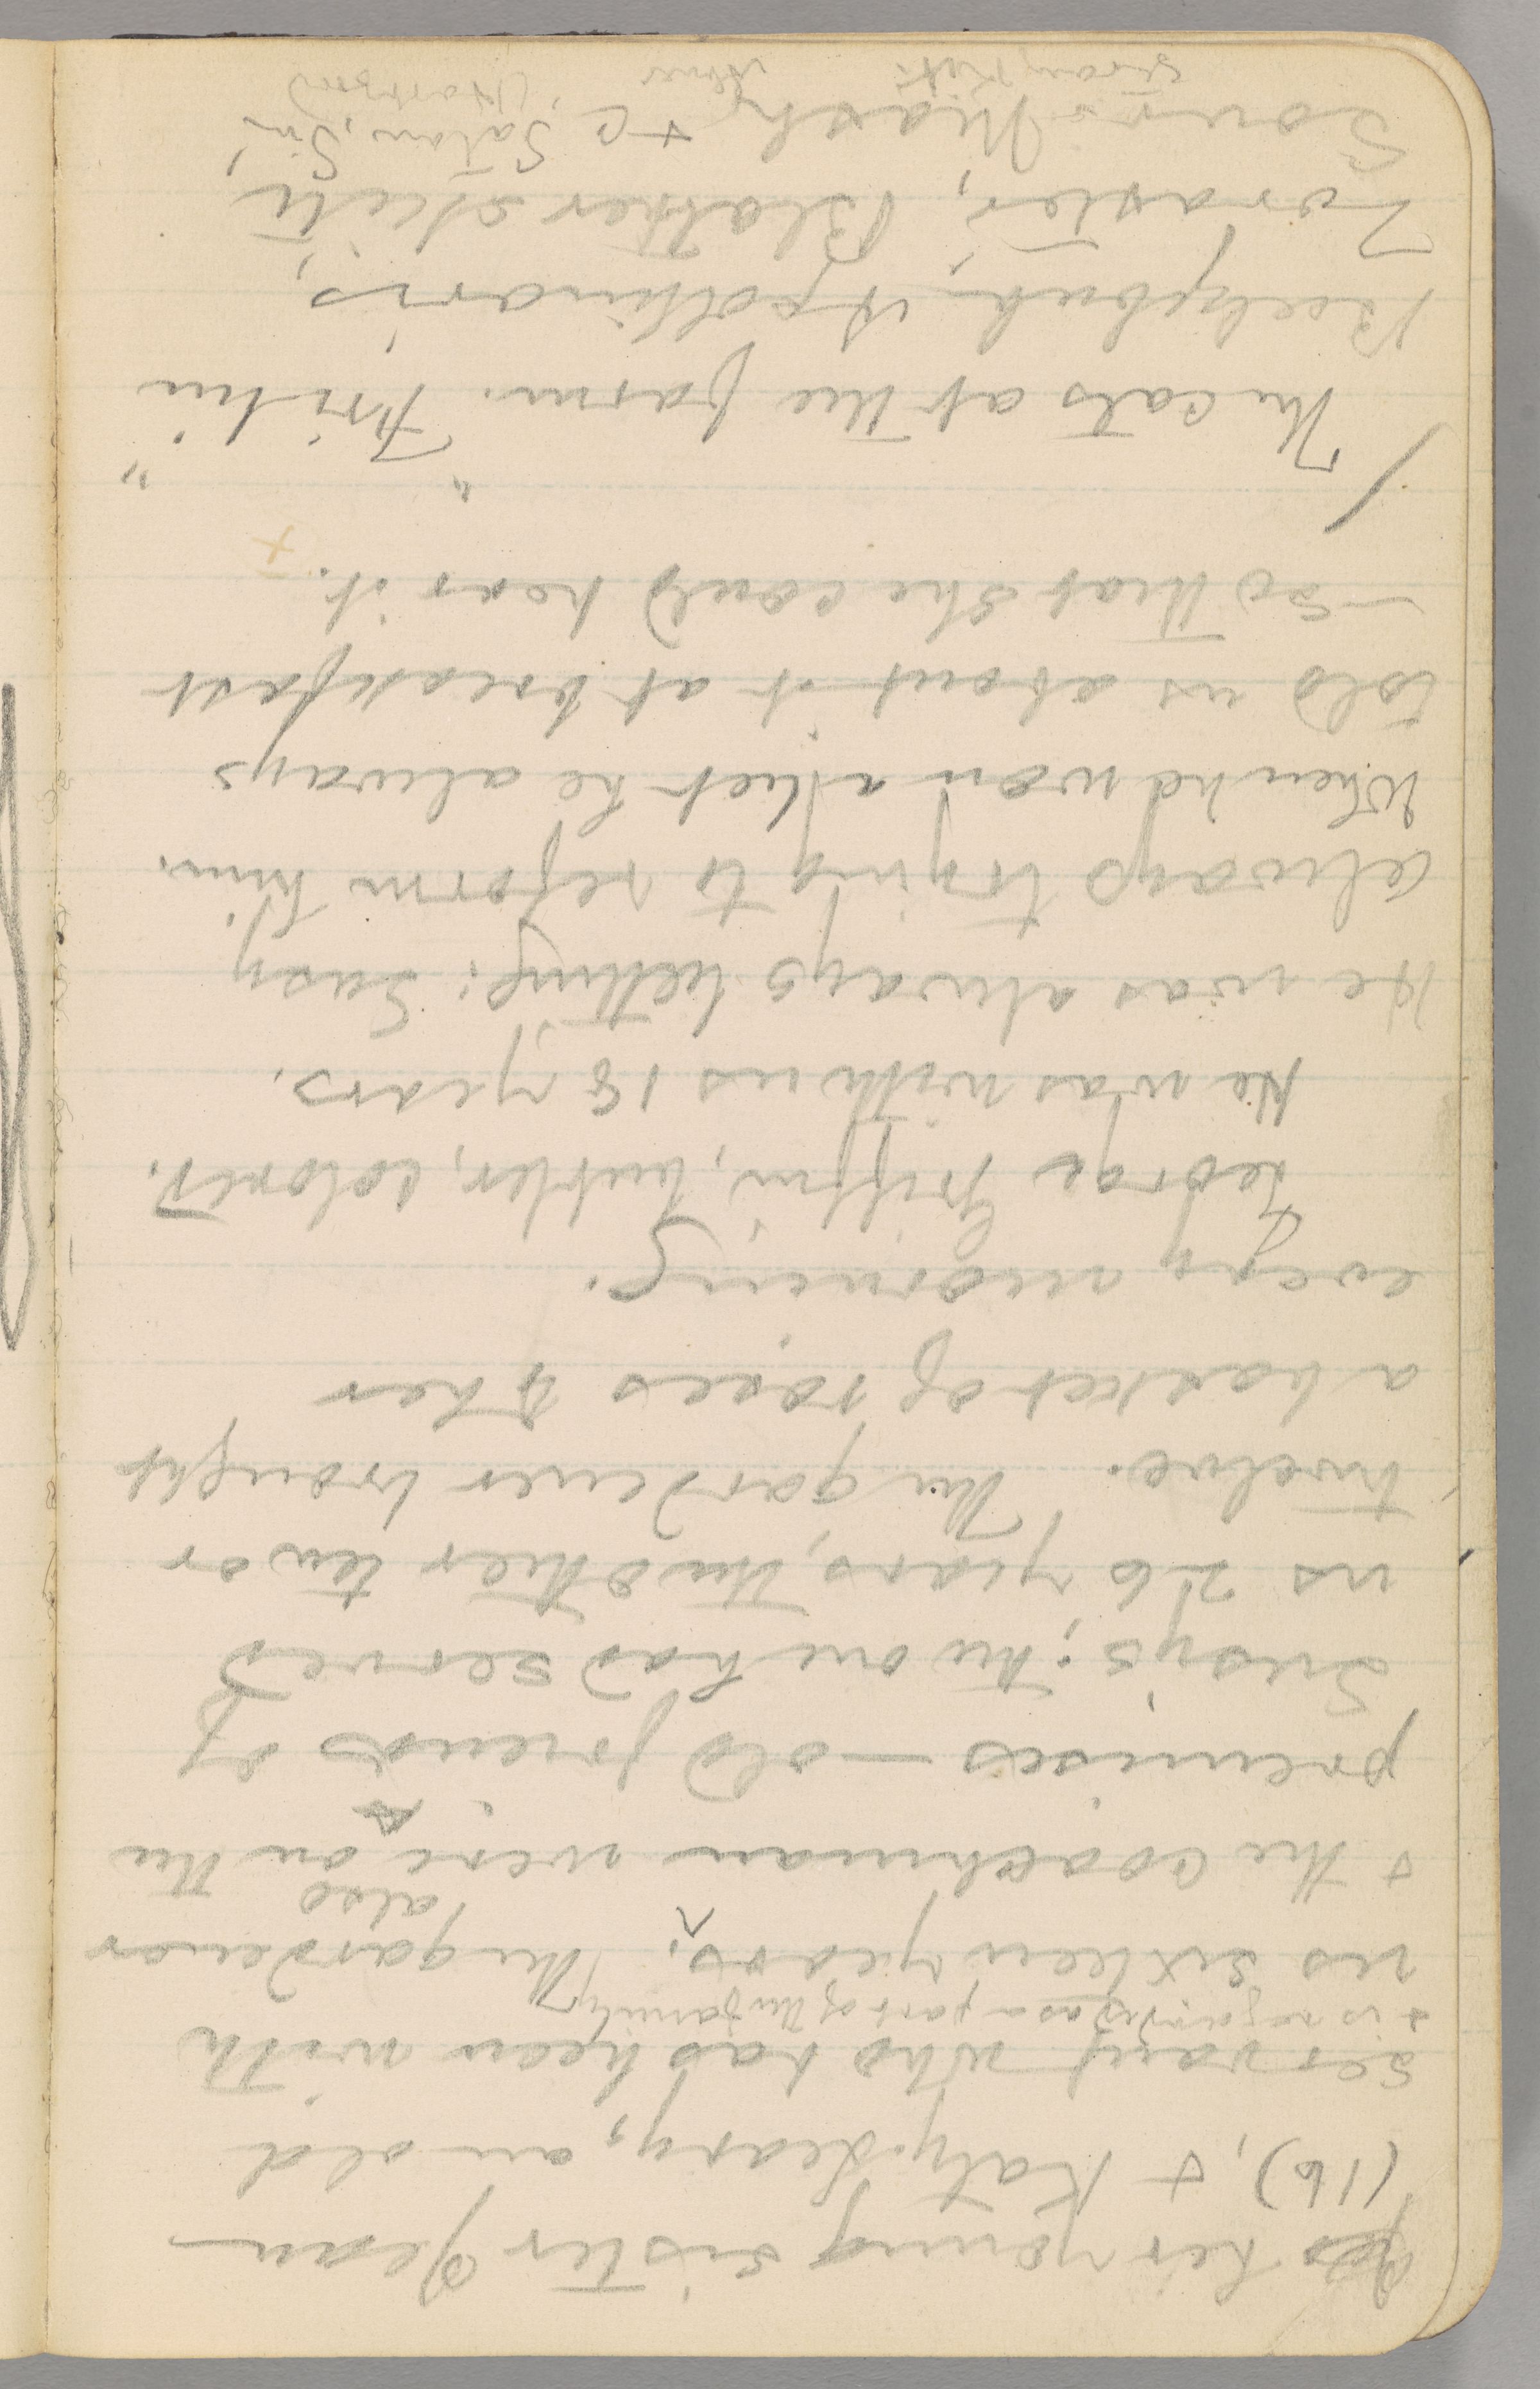 her young sister Jean
(16), + Katy Leary, an old
servant who has been with
+ is regarded as a part of the family
us sixteen years. The gardener
also
+ the coachman were on the
premises — old friends of
Susy's; the one had served
us 26 years, the other ten or
twelve. The gardener brought
a basket of roses to her
every morning.
George Griffin, butler, colored.
He was with us 18 years.
He was always betting; Susy
always trying to reform him.
When he won a bet he always
told us about it at breakfast
—so that she could hear it.
The cats at the farm. "
Beelzebub, Apollinaris,
Zoroaster, Blatherskite
Sour-Mash, +c Satan, Sin,
(Hartford)